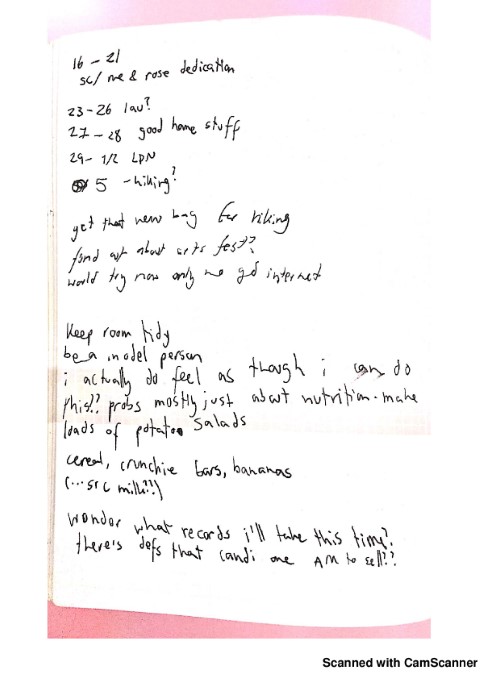 16 - 21
sc/ me & rose dedication
23-26 lau?
27-28 good home stuff
29- 1/2 LDN
5 - hiking?
get that new bag for hiking
find out about arts fest??
would try now only no gd internet
Keep room tidy
be a model person
i actually do feel as though i can do
this!! probs mostly just about nutrition. make
loads of potato salads
cereal, crunchie bars, bananas
(... milk??)
wonder what records i'll take this time?
there's defs that candi one AM to sell??
Scanned with CamScanner